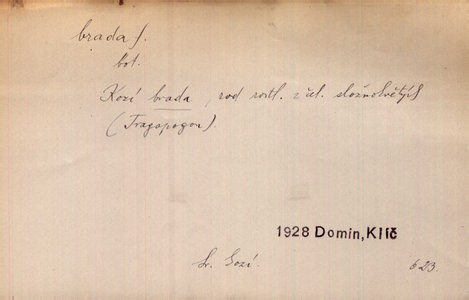 brada f.
bot.
Kozí brada, rod rostl. z čel. složnokvětých
(Tragopogon).
1928 Domin, Klíč
Sr. kozí.
623.